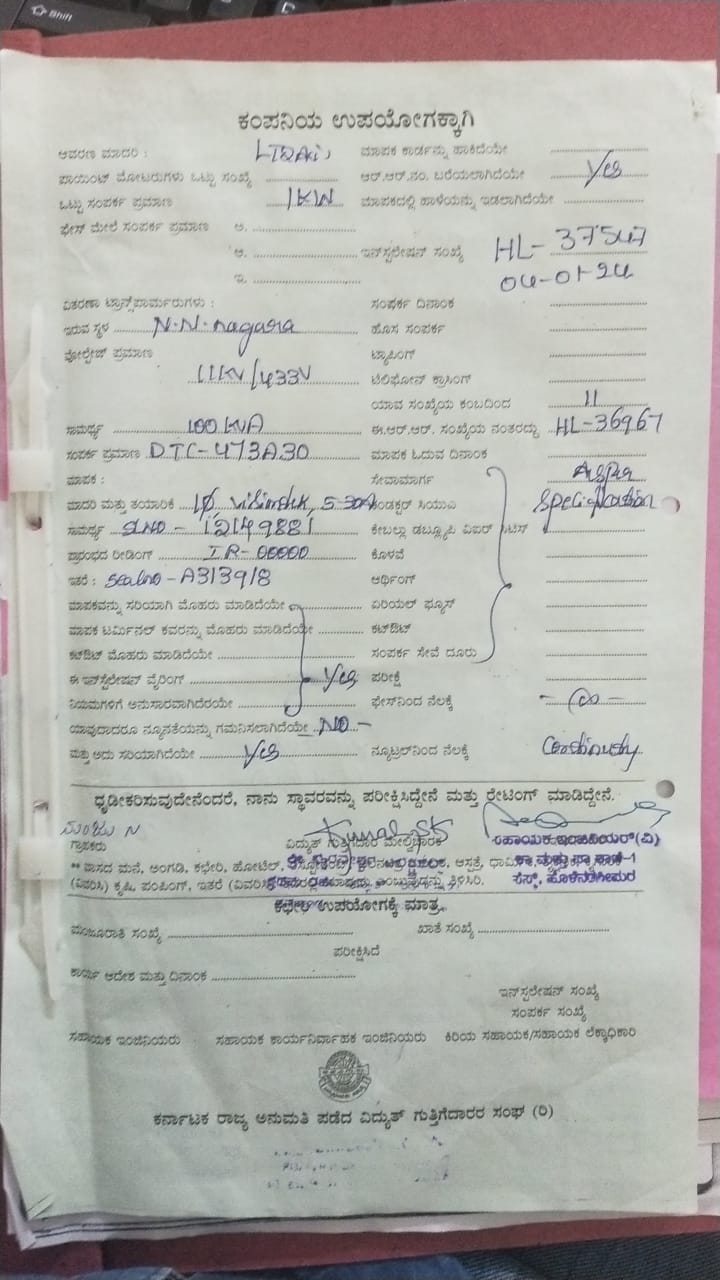 Shift
ಕಂಪನಿಯ ಉಪಯೋಗಕ್ಕಾಗಿ
ಆವರಣ ಮಾದರಿ : ಮಾಪಕ ಕಾರ್ಡನ್ನು ಹಾಕಿದೆಯೇ
ಪಾಯಿಂಟ್ ಮೋಟರುಗಳು ಒಟ್ಟು ಸಂಖ್ಯೆ ಆರ್.ಆರ್.ನಂ. ಬರೆಯಲಾಗಿದೆಯೇ Yes
ಒಟ್ಟು ಸಂಪರ್ಕ ಪ್ರಮಾಣ 1KW ಮಾಪಕದಲ್ಲಿ ಹಾಳೆಯನ್ನು ಇಡಲಾಗಿದೆಯೇ
ಫೇಸ್ ಮೇಲೆ ಸಂಪರ್ಕ ಪ್ರಮಾಣ ಅ.
ಆ. ಇನ್‌ಸ್ಟಲೇಷನ್ ಸಂಖ್ಯೆ HL- 37547
ಇ. 04-01-24
ವಿತರಣಾ ಟ್ರಾನ್ಸ್‌ಫಾರ್ಮರುಗಳು : ಸಂಪರ್ಕ ದಿನಾಂಕ
ಇರುವ ಸ್ಥಳ N.N.nagara ಹೊಸ ಸಂಪರ್ಕ
ವೋಲ್ಟೇಜ್ ಪ್ರಮಾಣ ಟ್ಯಾಪಿಂಗ್
11KV/433V ಟೆಲಿಫೋನ್ ಕ್ರಾಸಿಂಗ್
ಯಾವ ಸಂಖ್ಯೆಯ ಕಂಬದಿಂದ 11
ಸಾಮರ್ಥ್ಯ 100 KVA ಈ.ಆರ್.ಆರ್. ಸಂಖ್ಯೆಯ ನಂತರದ್ದು HL-36967
ಸಂಪರ್ಕ ಪ್ರಮಾಣ DTC-473A30 ಮಾಪಕ ಓದುವ ದಿನಾಂಕ
ಮಾಪಕ : ಸೇವಾಮಾರ್ಗ As per
ಮಾದರಿ ಮತ್ತು ತಯಾರಿಕೆ 1Ø 5-30A ಕಂಡಕ್ಟರ್ ಸಿಯುಎ specification
ಸಾಮರ್ಥ್ಯ SLNO - 12149881 ಕೇಬಲ್ಲು ಡಬ್ಲ್ಯೂಪಿ ವಿಐರ್
ಪ್ರಾರಂಭದ ರೀಡಿಂಗ್ IR-00000 ಕೊಳವೆ
ಇತರೆ : Sealno - A313918 ಆರ್ಥಿಂಗ್
ಮಾಪಕವನ್ನು ಸರಿಯಾಗಿ ಮೊಹರು ಮಾಡಿದೆಯೇ ಏರಿಯಲ್ ಫ್ಯೂಸ್
ಮಾಪಕ ಟರ್ಮಿನಲ್ ಕವರನ್ನು ಮೊಹರು ಮಾಡಿದೆಯೇ ಕಟ್‌ಔಟ್
ಕಟ್‌ಔಟ್ ಮೊಹರು ಮಾಡಿದೆಯೇ ಸಂಪರ್ಕ ಸೇವೆ ದೂರು
ಈ ಇನ್‌ಸ್ಟಲೇಷನ್ ವೈರಿಂಗ್ Yes ಪರೀಕ್ಷೆ
ನಿಯಮಗಳಿಗೆ ಅನುಸಾರವಾಗಿದೆಯೇ ಫೇಸ್‌ನಿಂದ ನೆಲಕ್ಕೆ
ಯಾವುದಾದರೂ ನ್ಯೂನತೆಯನ್ನು ಗಮನಿಸಲಾಗಿದೆಯೇ NO-
ಮತ್ತು ಅದು ಸರಿಯಾಗಿದೆಯೇ Yes ನ್ಯೂಟ್ರಲ್‌ನಿಂದ ನೆಲಕ್ಕೆ
ಧೃಡೀಕರಿಸುವುದೇನೆಂದರೆ, ನಾನು ಸ್ಥಾವರವನ್ನು ಪರೀಕ್ಷಿಸಿದ್ದೇನೆ ಮತ್ತು ರೇಟಿಂಗ್ ಮಾಡಿದ್ದೇನೆ.
ಮಂಜು N
ಗ್ರಾಹಕರು ವಿದ್ಯುತ್ ಗುತ್ತಿಗೆದಾರ ಮೇಲ್ವಿಚಾರಕ ಸಹಾಯಕ ಇಂಜಿನಿಯರ್(ವಿ)
** ವಾಸದ ಮನೆ, ಅಂಗಡಿ, ಕಛೇರಿ, ಹೋಟೆಲ್, ಆಸ್ಪತ್ರೆ,
(ವಿವರಿಸಿ) ಕೃಷಿ, ಪಂಪಿಂಗ್, ಇತರೆ ತಿಳಿಸಿರಿ.
ಕಛೇರಿ ಉಪಯೋಗಕ್ಕೆ ಮಾತ್ರ
ಮಂಜೂರಾತಿ ಸಂಖ್ಯೆ ಖಾತೆ ಸಂಖ್ಯೆ
ಪರೀಕ್ಷಿಸಿದೆ
ಕಾರ್ಯ ಆದೇಶ ಮತ್ತು ದಿನಾಂಕ
ಇನ್‌ಸ್ಟಲೇಷನ್ ಸಂಖ್ಯೆ
ಸಂಪರ್ಕ ಸಂಖ್ಯೆ
ಸಹಾಯಕ ಇಂಜಿನಿಯರು ಸಹಾಯಕ ಕಾರ್ಯನಿರ್ವಾಹಕ ಇಂಜಿನಿಯರು ಕಿರಿಯ ಸಹಾಯಕ/ಸಹಾಯಕ ಲೆಕ್ಕಾಧಿಕಾರಿ
ಕರ್ನಾಟಕ ರಾಜ್ಯ ಅನುಮತಿ ಪಡೆದ ವಿದ್ಯುತ್ ಗುತ್ತಿಗೆದಾರರ ಸಂಘ (ರಿ)